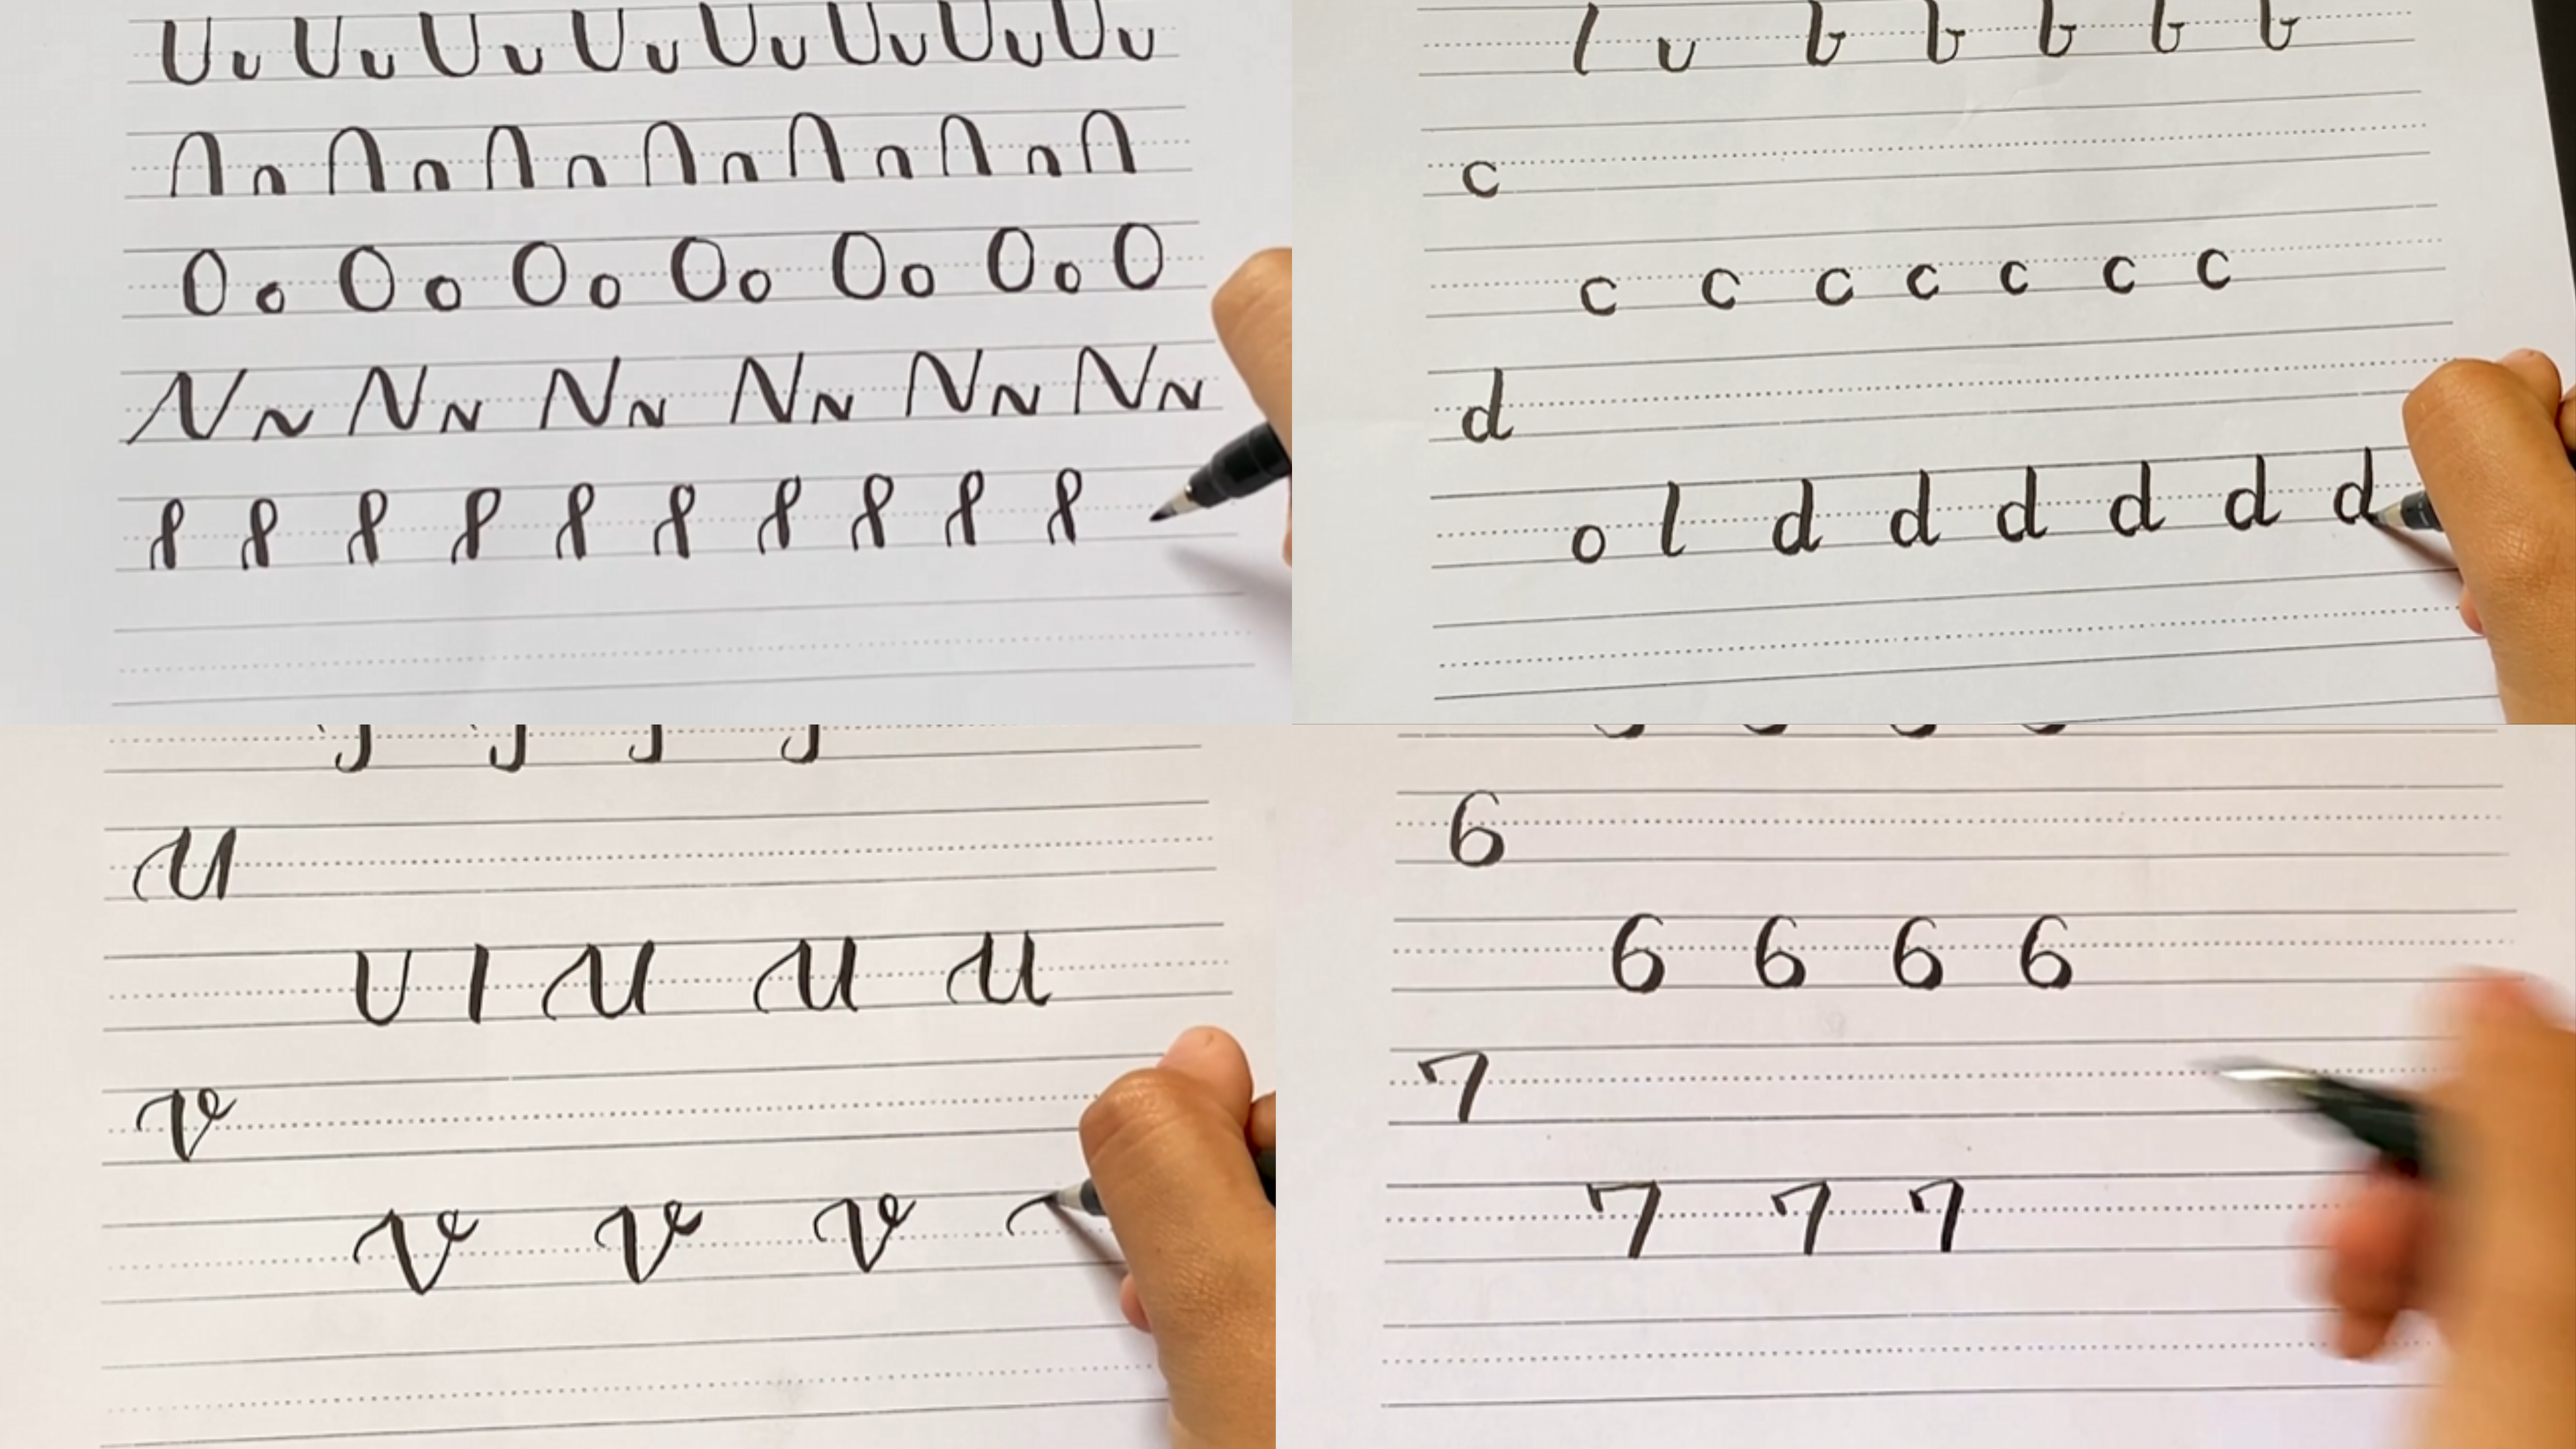 U u U u U u U u U u U u U u U u
∩ n ∩ n ∩ n ∩ n ∩ n ∩ n ∩
O o O o O o O o O o O o O
N N N N N N N N N N N N
l u b b b b b
c
c c c c c c c
d
o l d d d d d d
U
U I U U U
v
v v v
6
6 6 6 6
7
7 7 7